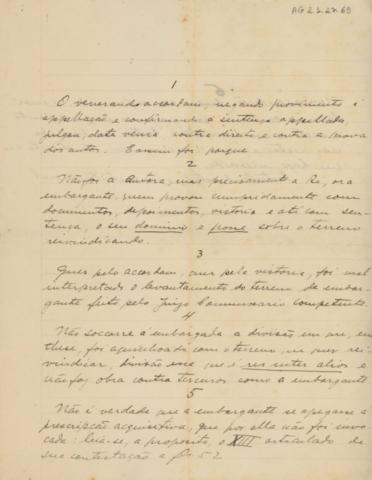 AG 22.22.69
1
O venerando accordam, negando provimento á
appellação e confirmando a sentença appellada,
julgou, data venia contra direito e contra a prova
dos autos. E assim foi porque
2
Não foi a Autora, mas precisamente a Ré, ora
embargante, quem provou cumpridamente com
documentos, depoimentos, vistoria e até com sen-
tença, o seu dominio e posse sobre o terreno
reivindicando.
3
Quer pelo accordam, quer pela vistoria, foi mal
interpretado o levantamento do terreno da embar-
gante feito pelo Juizo Commissario competente.
4
Não soccorre á embargada a divisão em que, em
these, foi aquinhoada com o terreno, ou quer rei-
vindicar, divisão essa que é res inter alios e
não foi obra contra terceiros como a embargante
5
Não é verdade que a embargante se apegasse á
prescripção acquisitiva, que por ella não foi invo-
cada: leia-se, a proposito, o XIII articulado de
sua contestação a fls 52